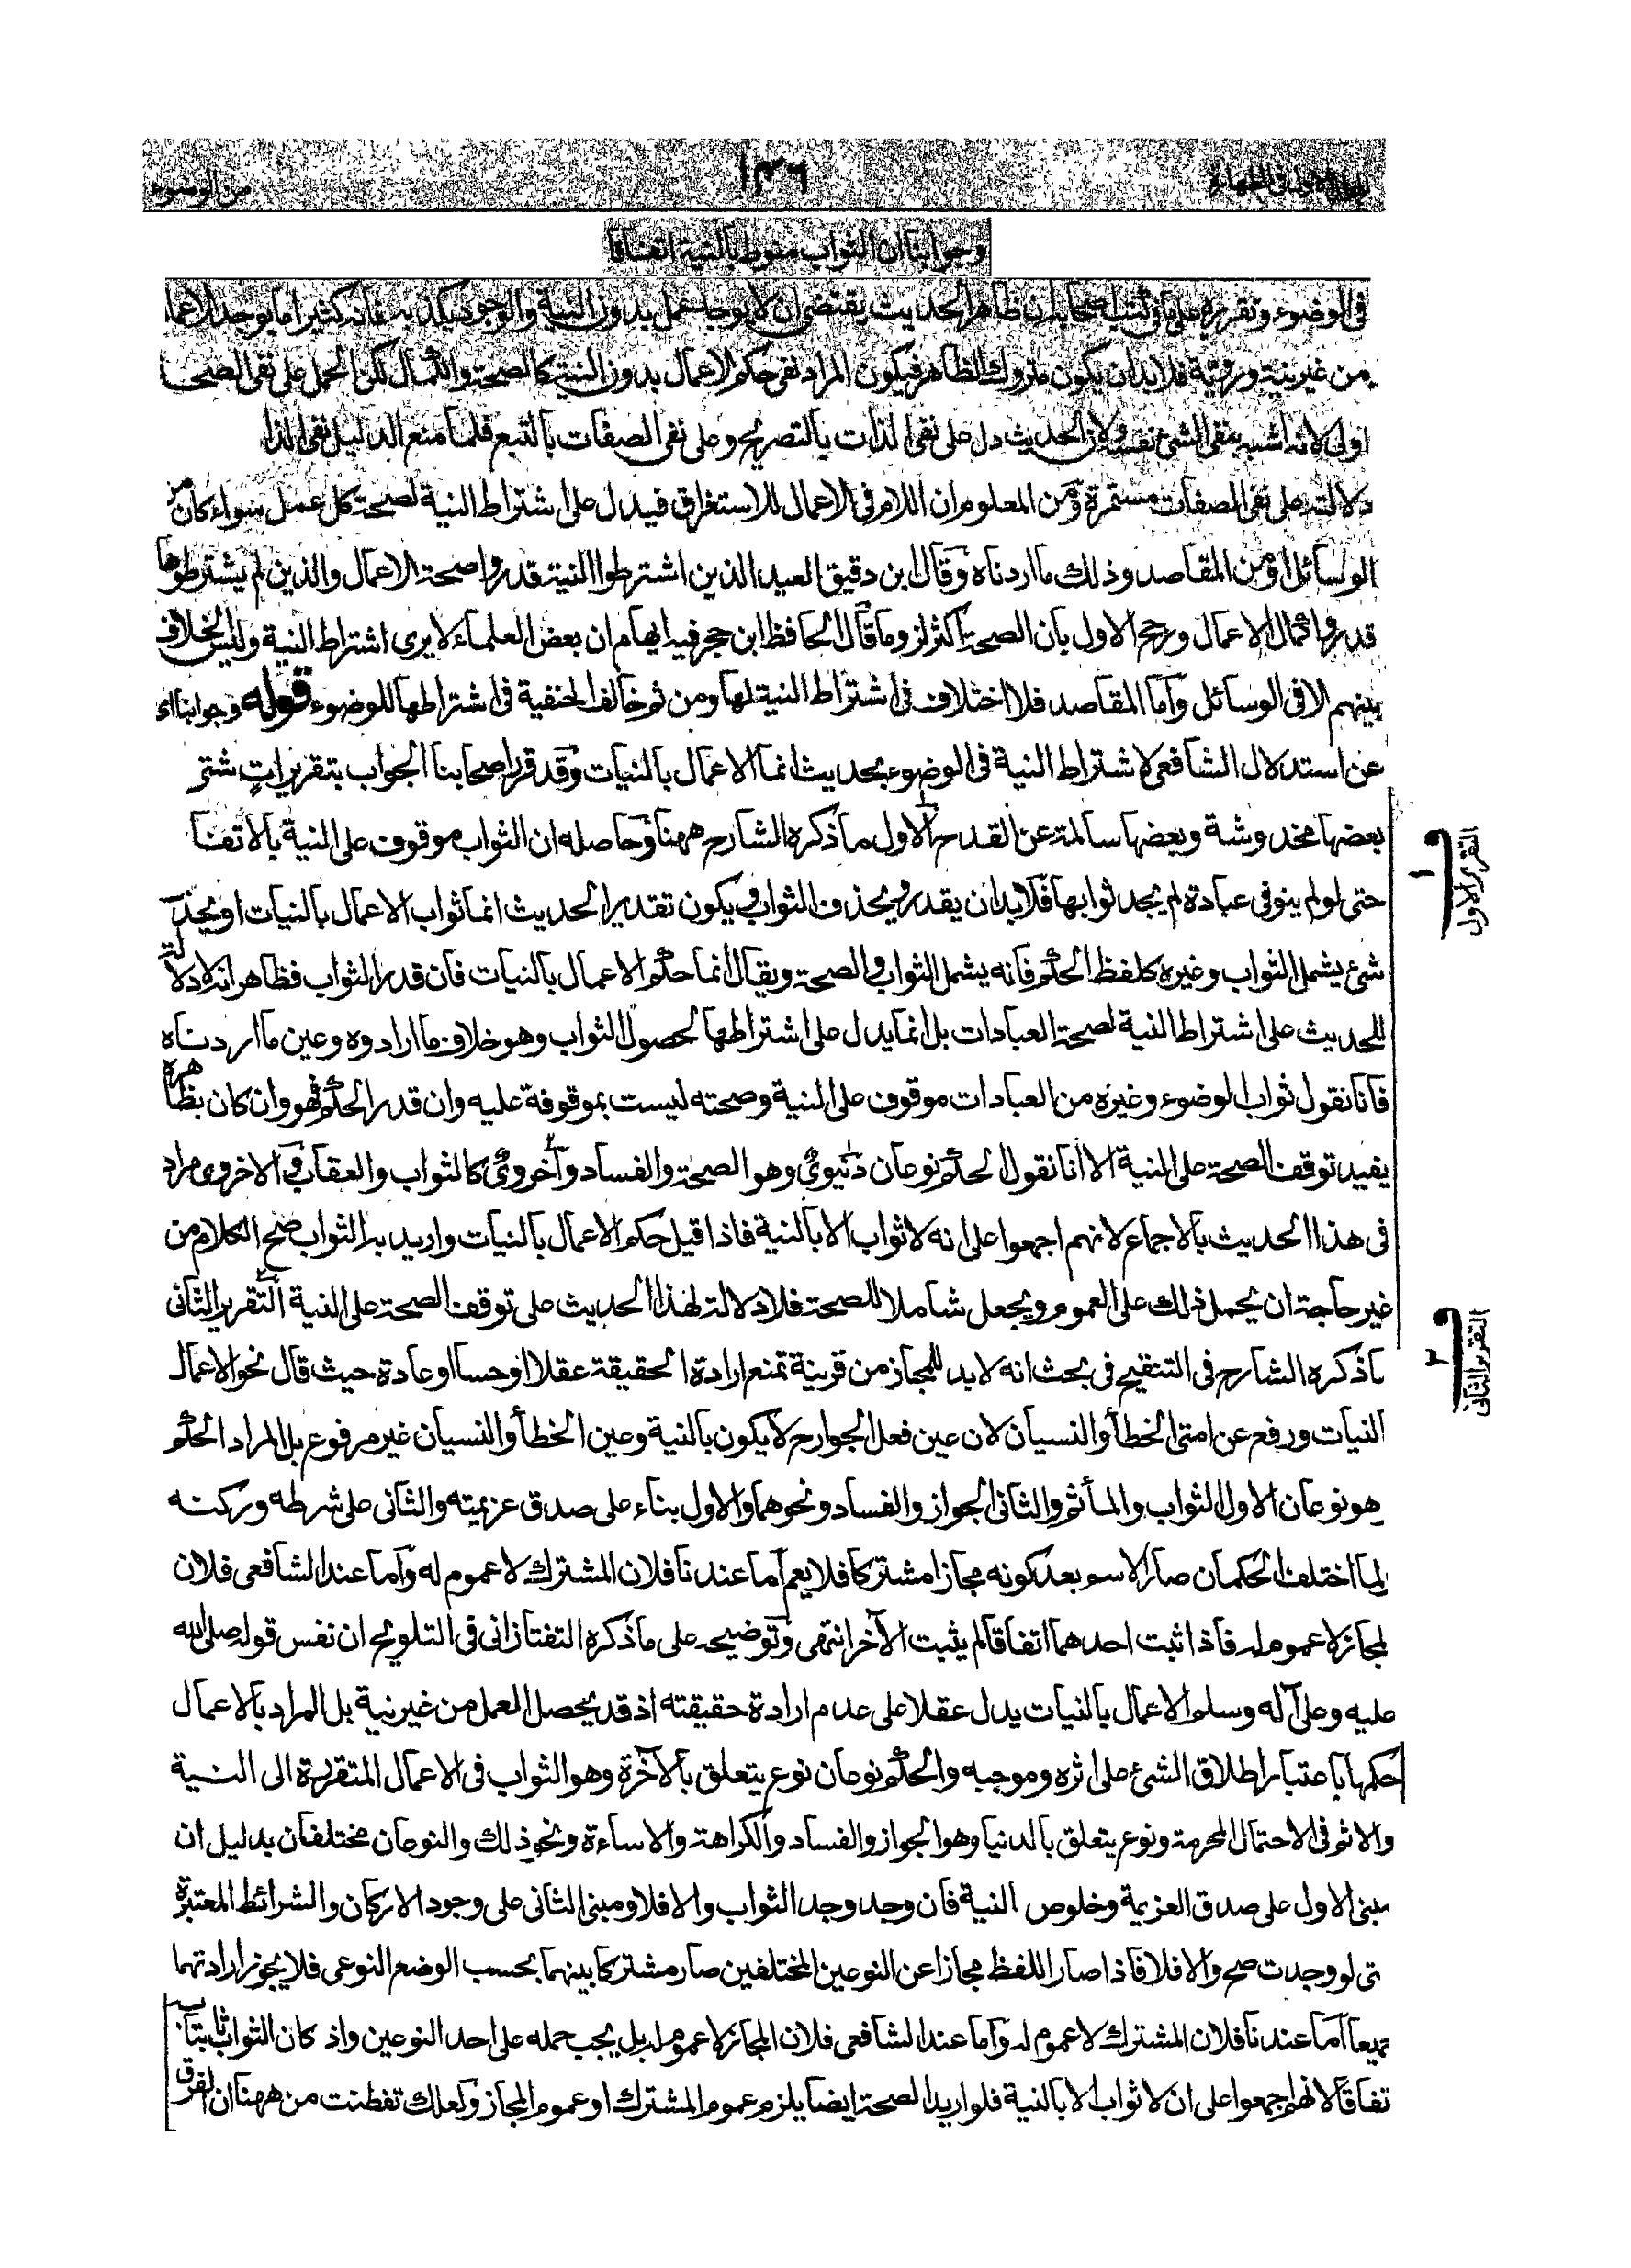 ١٣٦
من الوضوء
وجوابنا ان الثواب منوط بالنية اتفاقا
فى الوضوء وتقريره على ما فى كتب اصحابه ان ظاهر الحديث يقتضى ان لا يوجد عمل بدون النية والوجود يكذبه فانه كثيرا ما يوجد الاعما
من غير نية وروية فلا بد ان يكون متروك الظاهر فيكون المراد نفى حكم الاعمال بدون النية كالصحة والكمال لكن الحمل على نفى الصحة
اولى لانه اشبه بنفى الشئ نفسه ولان الحديث دل على نفى الذات بالتصريح وعلى نفى الصفات بالتبع فلما منع الدليل نفى الذا
دلالته على نفى الصفات مستمرة ومن المعلوم ان اللام فى الاعمال للاستغراق فيدل على اشتراط النية لصحة كل عمل سواء كان من
الوسائل او من المقاصد وذلك ما اردناه وقال ابن دقيق العيد الذين اشترطوا النية قدروا صحة الاعمال والذين لم يشترطوها
قدروا كمال الاعمال ورجح الاول بان الصحة اكثر لزوما قال الحافظ ابن حجر فيه ايهام ان بعض العلماء لا يرى اشتراط النية وليس الخلاف
بينهم الا فى الوسائل واما المقاصد فلا اختلاف فى اشتراط النية لها ومن ثم خالف الحنفية فى اشتراطها للوضوء قوله وجوابنا اى
عن استدلال الشافعى لاشتراط النية فى الوضوء بحديث انما الاعمال بالنيات وقد قرر اصحابنا الجواب بتقريرات شتر
بعضها مخدوشة وبعضها سالمة عن القدح الاول ما ذكره الشارح ههنا وحاصله ان الثواب موقوف على النية بالاتفا
حتى لو لم ينو فى عبادة لم يجد ثوابها فلا بد ان يقدر ويحذف الثواب ويكون تقدير الحديث انما ثواب الاعمال بالنيات او يحذ
شئ يشمل الثواب وغيره كلفظ الحكم فانه يشمل الثواب والصحة ويقال انما حكم الاعمال بالنيات فان قدر الثواب فظاهر انه لا دلالة
للحديث على اشتراط النية لصحة العبادات بل انما يدل على اشتراطها لحصول الثواب وهو خلاف ما ارادوه وعين ما اردناه
فانا نقول ثواب الوضوء وغيره من العبادات موقوف على النية وصحته ليست بموقوفة عليه وان قدر الحكم فهو وان كان بظاهره
يفيد توقف الصحة على النية الا انا نقول الحكم نوعان دنيوى وهو الصحة والفساد واخروى كالثواب والعقاب والاخروى مراد
فى هذا الحديث بالاجماع لانهم اجمعوا على انه لا ثواب الا بالنية فاذا قيل حكم الاعمال بالنيات واريد به الثواب صح الكلام من
غير حاجة ان يحمل ذلك على العموم ويجعل شاملا للصحة فلا دلالة لهذا الحديث على توقف الصحة على النية التقرير الثانى
ما ذكره الشارح فى التنقيح فى بحث انه لا بد للمجاز من قرينة تمنع ارادة الحقيقة عقلا او حسا او عادة حيث قال نحو الاعمال
النيات ورفع عن امتى الخطأ والنسيان لان عين فعل الجوارح لا يكون بالنية وعين الخطأ والنسيان غير مرفوع بل المراد الحكم
هو نوعان الاول الثواب والمأثم والثانى الجواز والفساد ونحوهما والاول بناء على صدق عزيمته والثانى على شرطه وركنه
لما اختلف الحكمان صار الاسم بعد كونه مجازا مشتركا فلا يعم اما عندنا فلان المشترك لا عموم له واما عند الشافعى فلان
لمجاز لا عموم له فاذا ثبت احدهما اتفاقا لم يثبت الآخر انتهى وتوضيحه على ما ذكره التفتازانى فى التلويح ان نفس قوله صلى الله
عليه وعلى آله وسلم الاعمال بالنيات يدل عقلا على عدم ارادة حقيقته اذ قد يحصل العمل من غير نية بل المراد بالاعمال
حكمها باعتبار اطلاق الشئ على اثره وموجبه والحكم نوعان نوع يتعلق بالآخرة وهو الثواب فى الاعمال المتقررة الى النية
والاثم فى الاحتمال المحرمة ونوع يتعلق بالدنيا وهو الجواز والفساد والكراهة والاساءة ونحو ذلك والنوعان مختلفان بدليل ان
مبنى الاول على صدق العزيمة وخلوص النية فان وجد وجد الثواب والا فلا ومبنى الثانى على وجود الاركان والشرائط المعتبرة
تى لو وجدت صح والا فلا فاذا صار اللفظ مجازا عن النوعين المختلفين صار مشتركا بينهما بحسب الوضع النوعى فلا يجوز ارادتهما
جميعا اما عندنا فلان المشترك لا عموم له واما عند الشافعى فلان المجاز لا عموم له بل يجب حمله على احد النوعين واذ كان الثواب ثابتا
تفاقا لانهم اجمعوا على ان لا ثواب الا بالنية فلو اريد الصحة ايضا يلزم عموم المشترك او عموم المجاز ولعلك تفطنت من ههنا ان الفرق
التقرير الاول
١
التقرير الثانى
٢